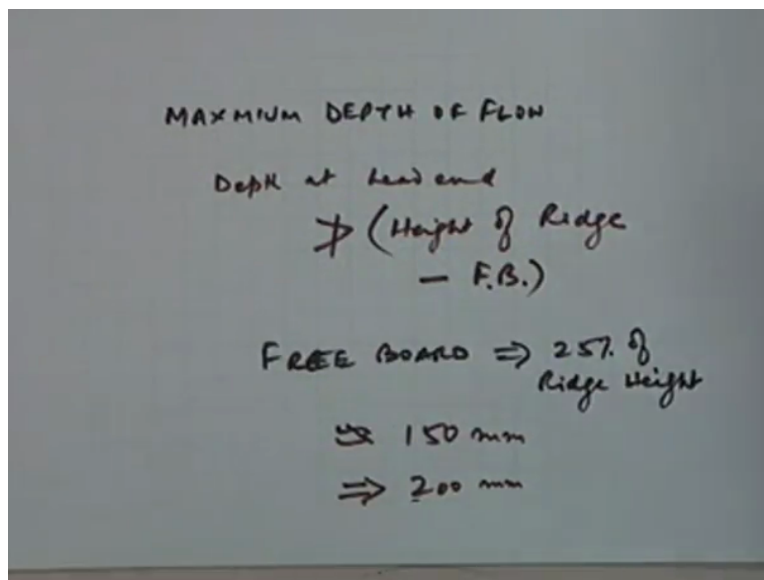 MAXMIUM DEPTH OF FLOW
Depth at head end
≯ (Height of Ridge
— F.B.)
FREE BOARD ⇒ 25% of
Ridge Height
150 mm
⇒ 200 mm